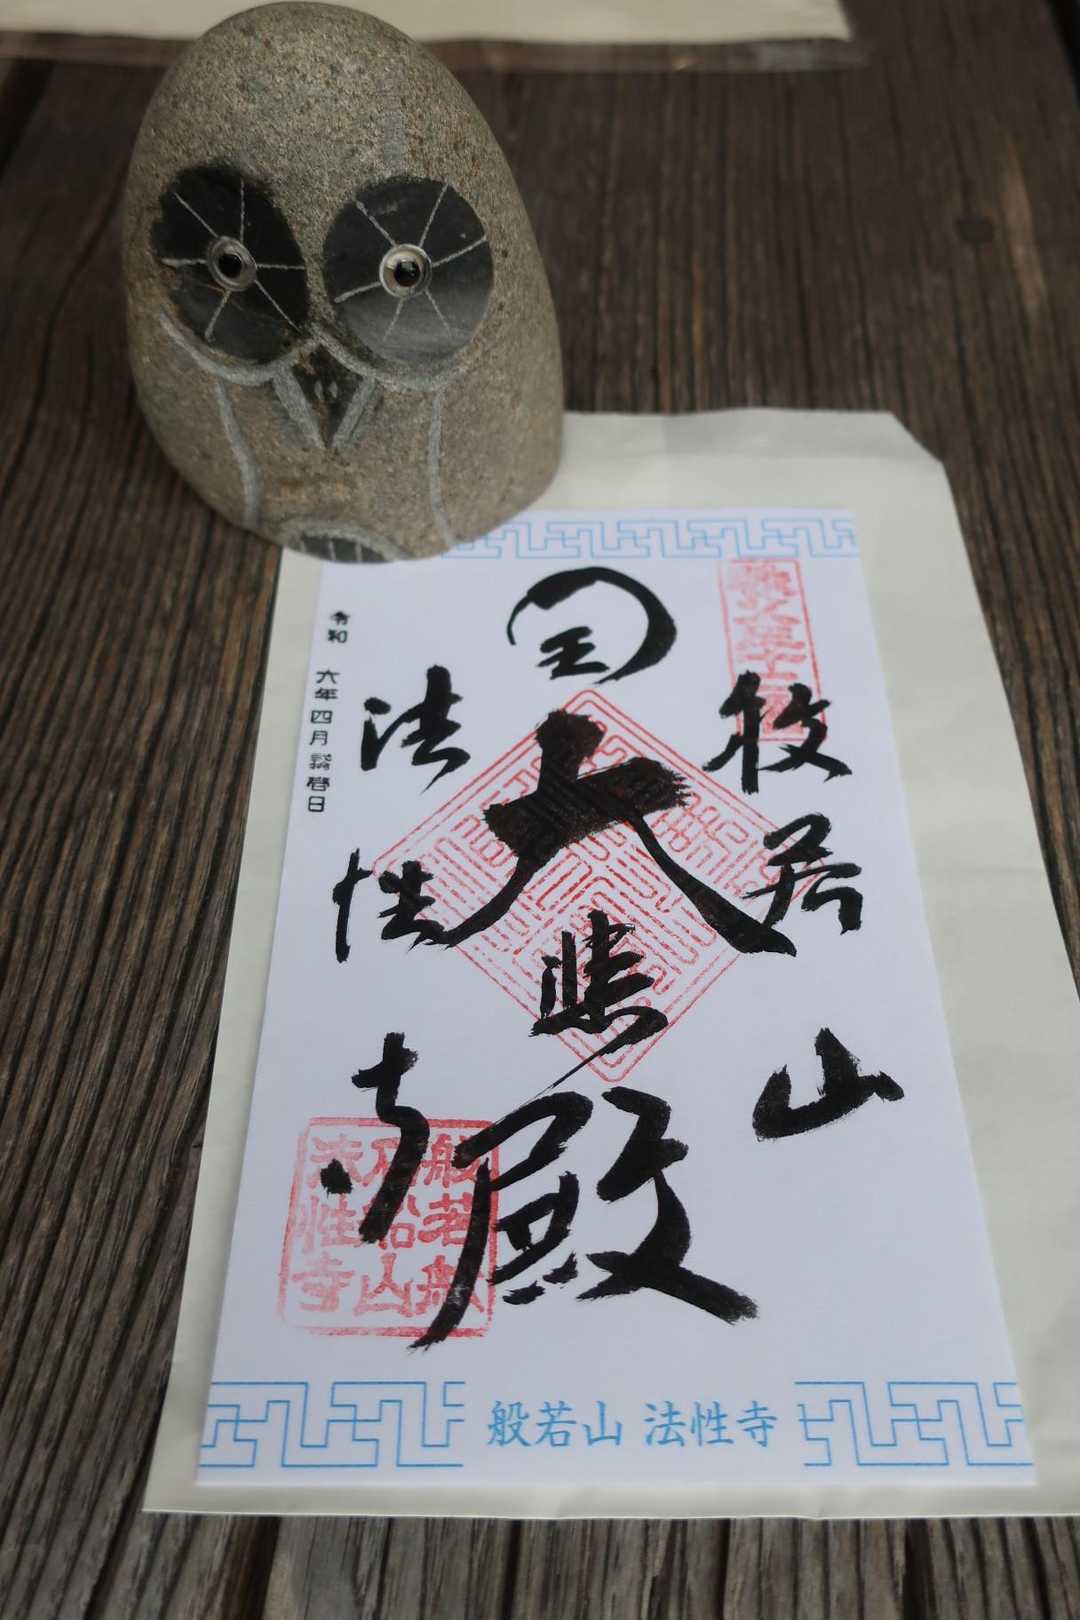 般若山
大悲殿
法性寺
令和 六年四月 日
般若
石船山
法性寺
般若山 法性寺